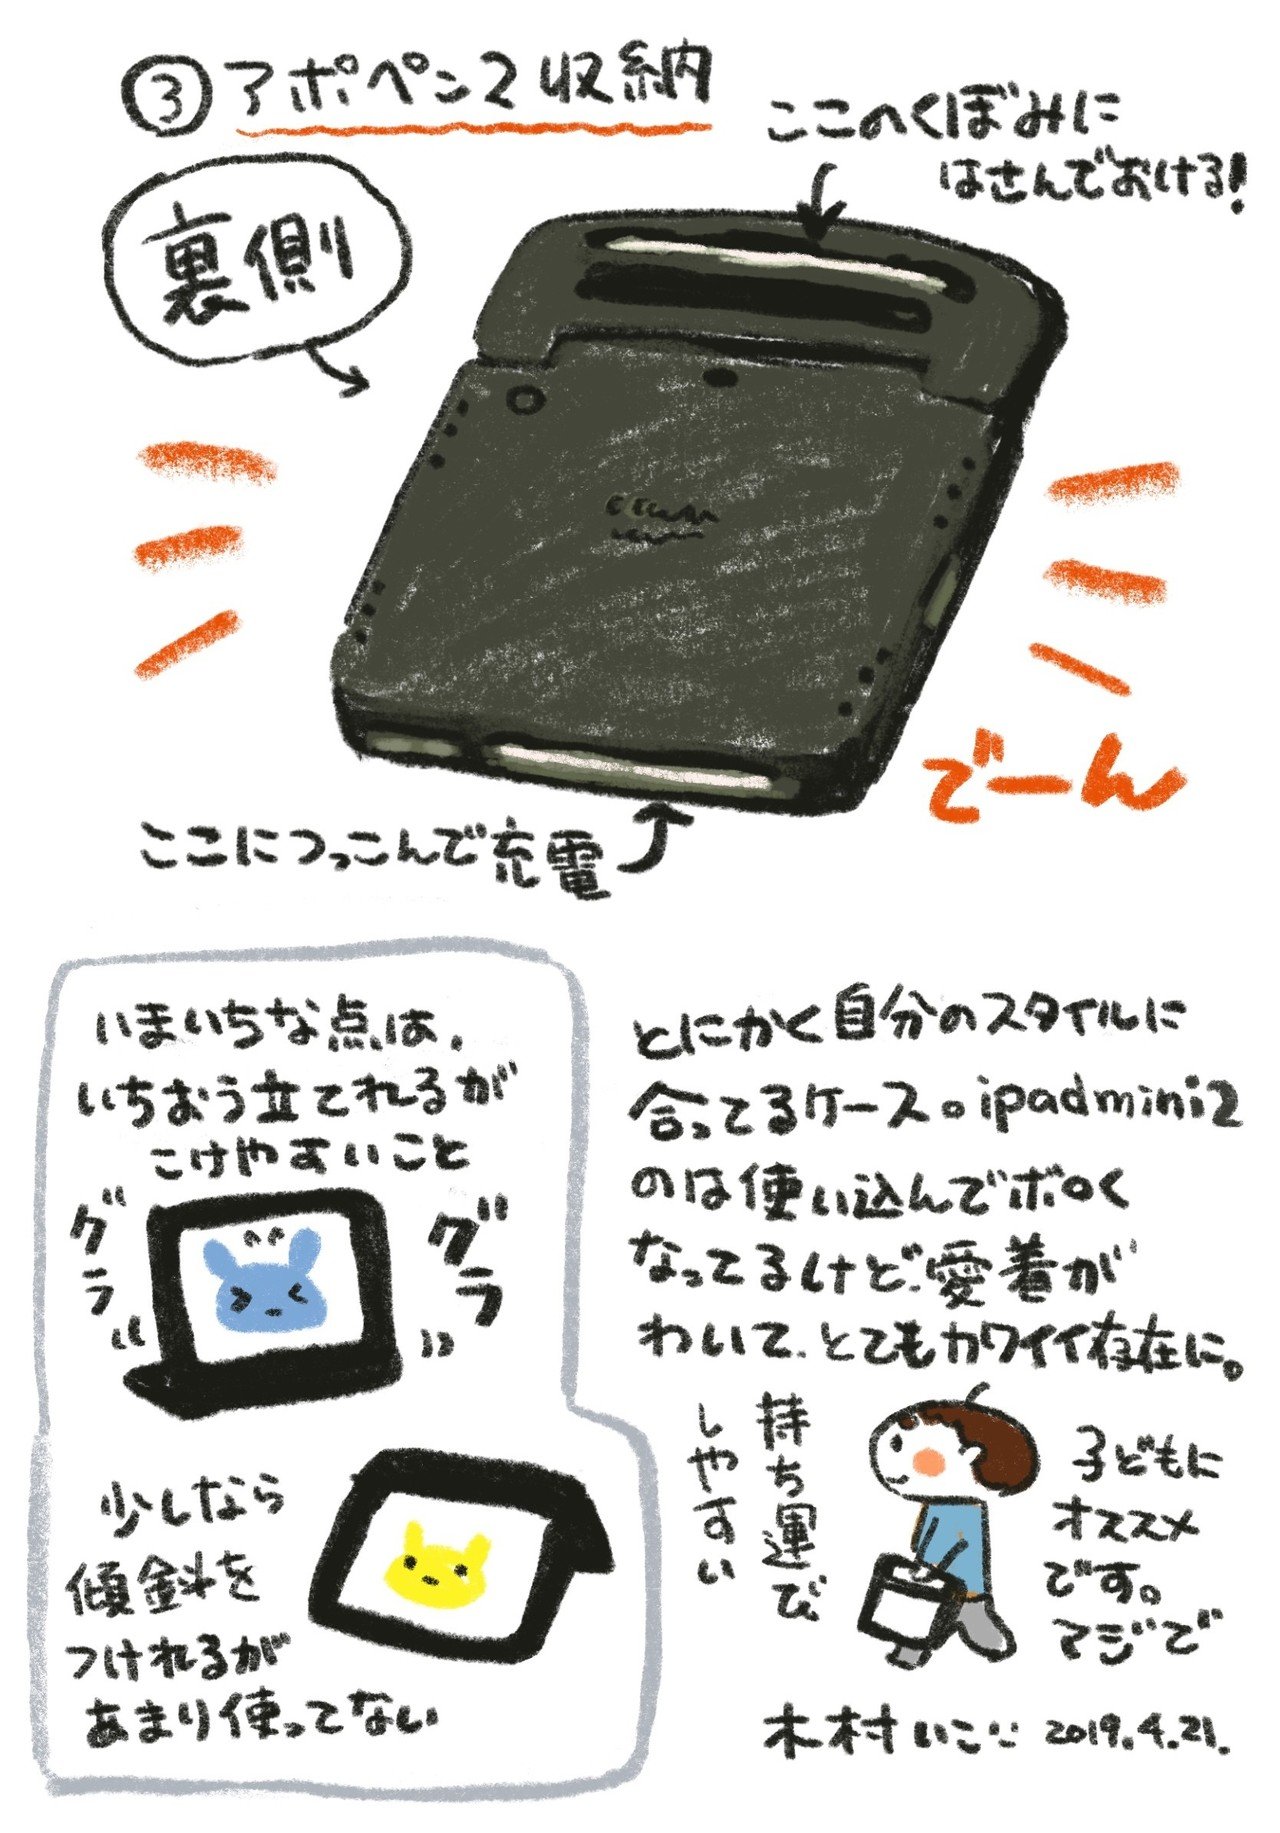 ③アポペン2収納
ここのくぼみに
はさんでおける!
裏側
でーん
ここにつっこんで充電
いまいちな点は、
いちおう立てれるが
こけやすいこと
グラ
グラ
少しなら
傾斜を
つけれるが
あまり使ってない
とにかく自分のスタイルに
合ってるケース。ipadmini2
のは使い込んでボロく
なってるけど、愛着が
わいて、とてもカワイイ存在に。
持ち運び
しやすい
子どもに
オススメ
です。
マジで
木村いこ 2019.4.21.